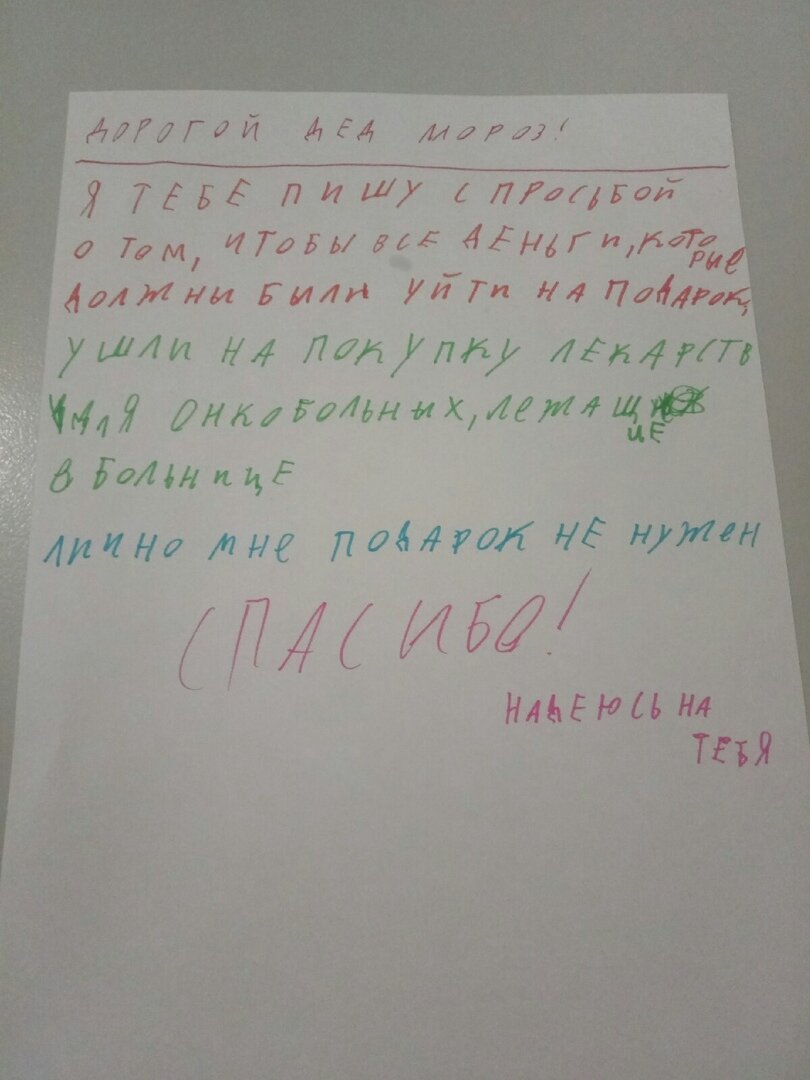 ДОРОГОЙ ДЕД МОРОЗ!
Я ТЕБЕ ПИШУ С ПРОСЬБОЙ
О ТОМ, ЧТОБЫ ВСЕ ДЕНЬГИ, КОТО
РЫЕ
ДОЛЖНЫ БЫЛИ УЙТИ НА ПОДАРОК,
УШЛИ НА ПОКУПКУ ЛЕКАРСТВ
ДЛЯ ОНКОБОЛЬНЫХ, ЛЕЖАЩ
ИЕ
В БОЛЬНИЦЕ
ЛИЧНО МНЕ ПОДАРОК НЕ НУЖЕН
СПАСИБО!
НАДЕЮСЬ НА
ТЕБЯ